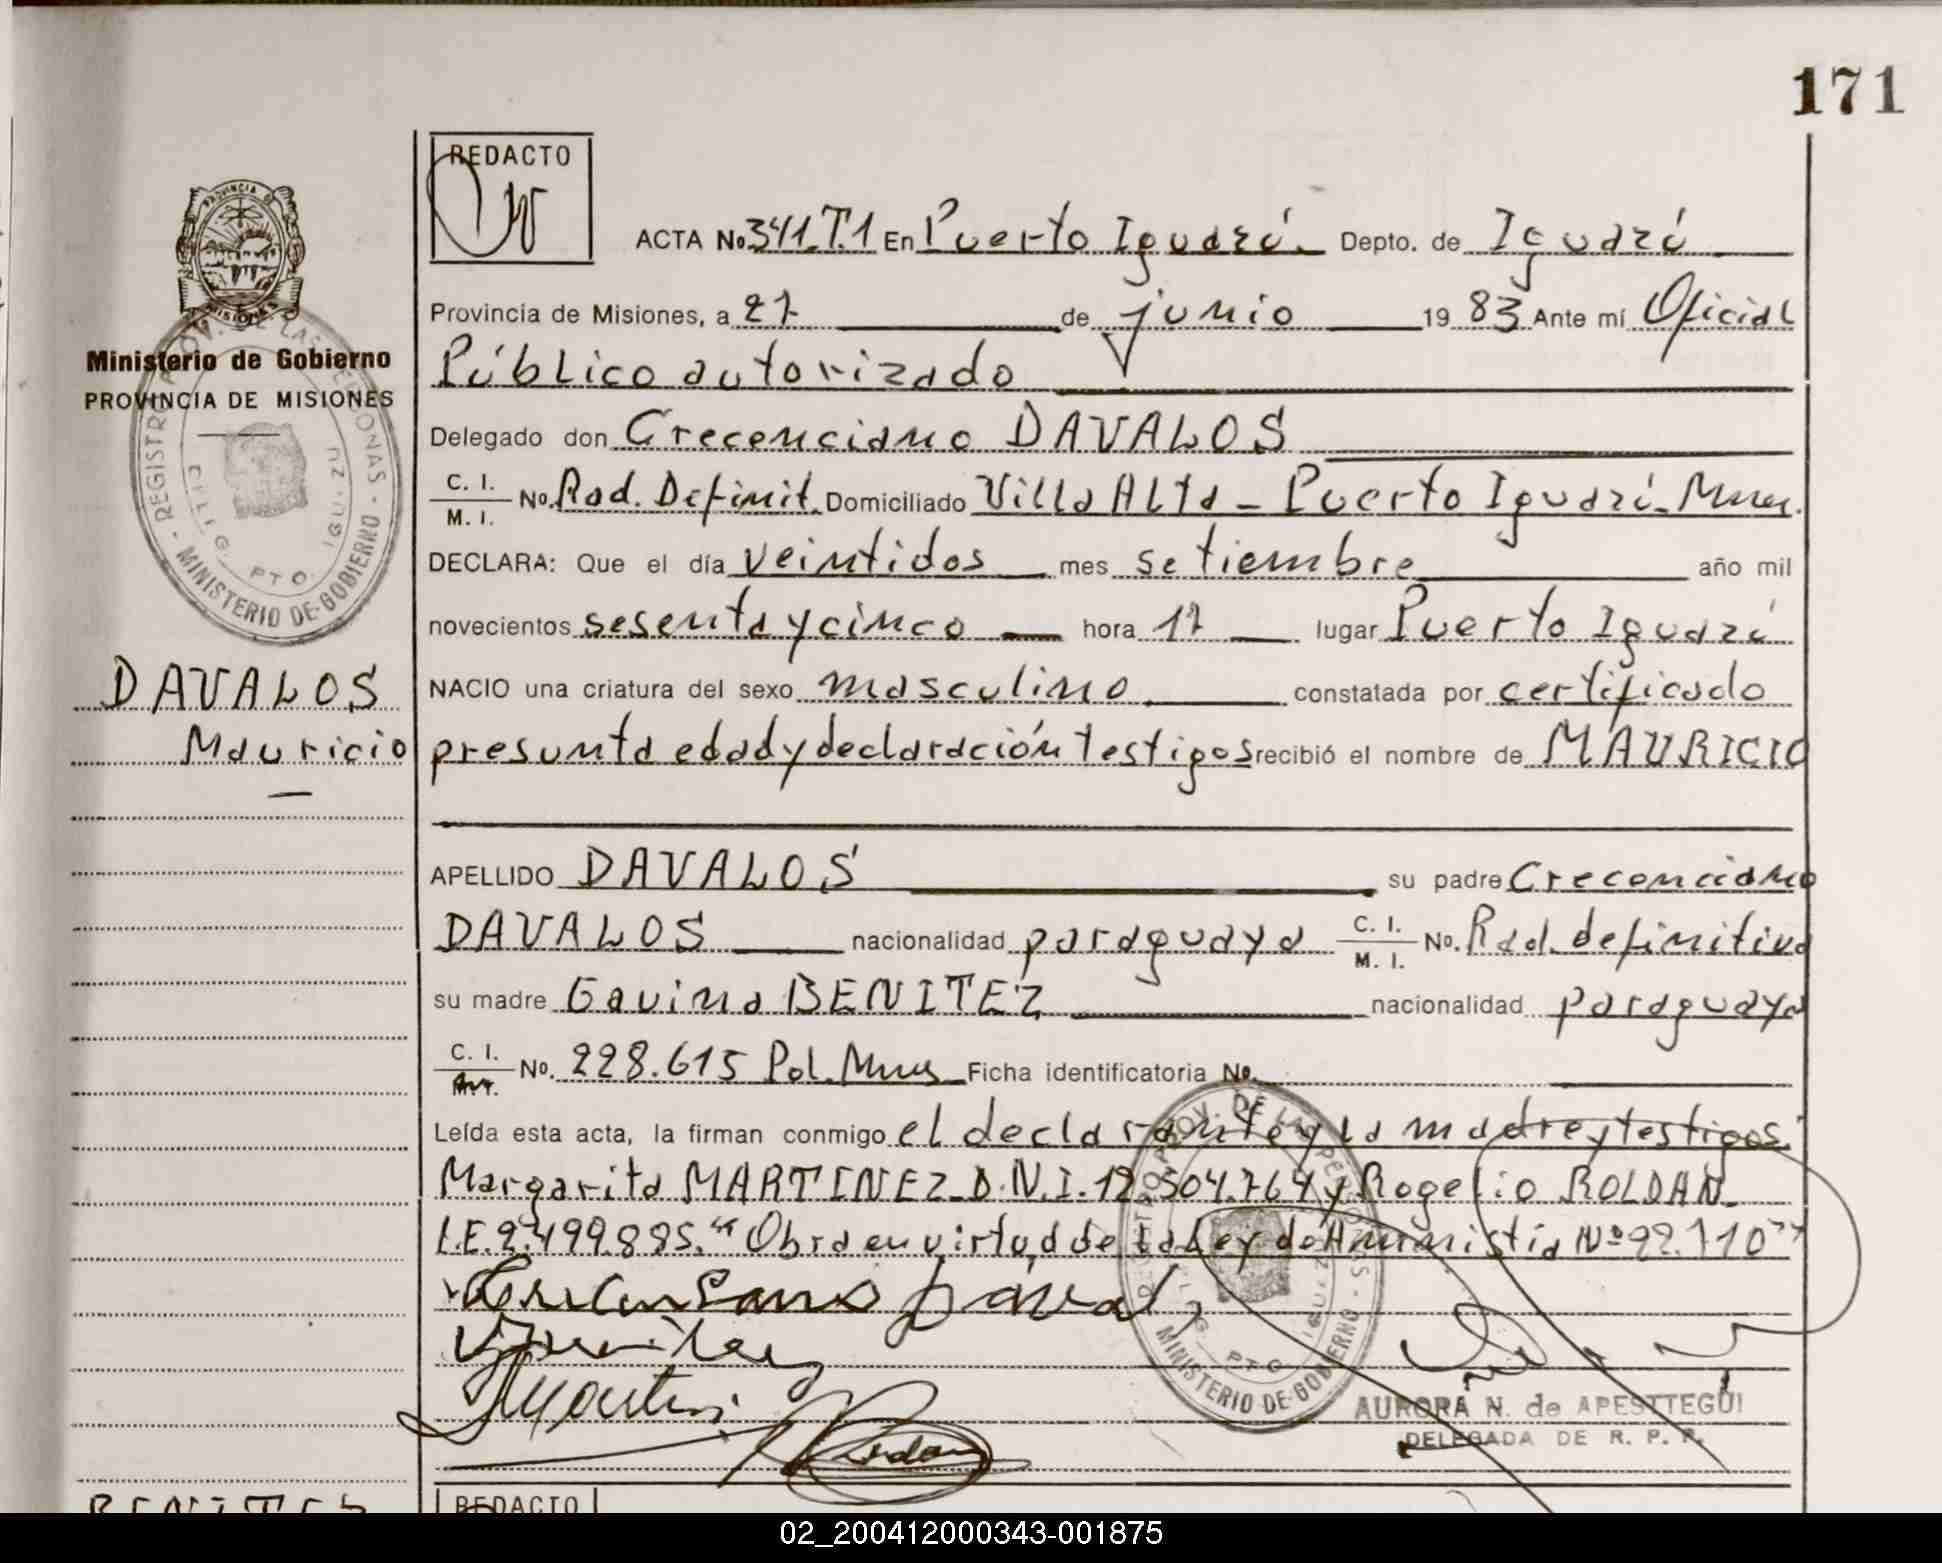 171
REDACTO
ACTA No 341.T.1 En Puerto Iguazú Depto. de Iguazú
Provincia de Misiones, a 27 de junio 19 83 Ante mí Oficial
Público autorizado
Delegado don Crecenciano DAVALOS
C. I. / M. I. No. Rad. Definit. Domiciliado Villa Alta - Puerto Iguazú - Mnes.
DECLARA: Que el día veintidos mes setiembre año mil
novecientos sesenta y cinco hora 17 lugar Puerto Iguazú
NACIO una criatura del sexo masculino constatada por certificado
presunta edad y declaración testigos recibió el nombre de MAURICIO
APELLIDO DAVALOS su padre Crecenciano
DAVALOS nacionalidad paraguaya C. I. / M. I. No. Rad. definitiva
su madre Gavina BENITEZ nacionalidad paraguaya
C. I. No. 228.615 Pol. Mnes Ficha identificatoria No.
Leída esta acta, la firman conmigo el declarante y la madre y testigos:
Margarita MARTINEZ D.N.I. 12.504.764 y Rogelio ROLDAN
L.E. 2.499.885. "Obra en virtud de la Ley de Amnistia Nº 22.110"
AURORA N. de APESTTEGUI
DELEGADA DE R. P. P.
PROVINCIA DE
MISIONES
Ministerio de Gobierno
PROVINCIA DE MISIONES
REGISTRO PROV. DE LAS PERSONAS - MINISTERIO DE GOBIERNO -
PTO. IGUAZU
DAVALOS
Mauricio
BENITEZ
REDACTO
REGISTRO PROV. DE LAS PERSONAS - MINISTERIO DE GOBIERNO
PTO. IGUAZU
02_200412000343-001875